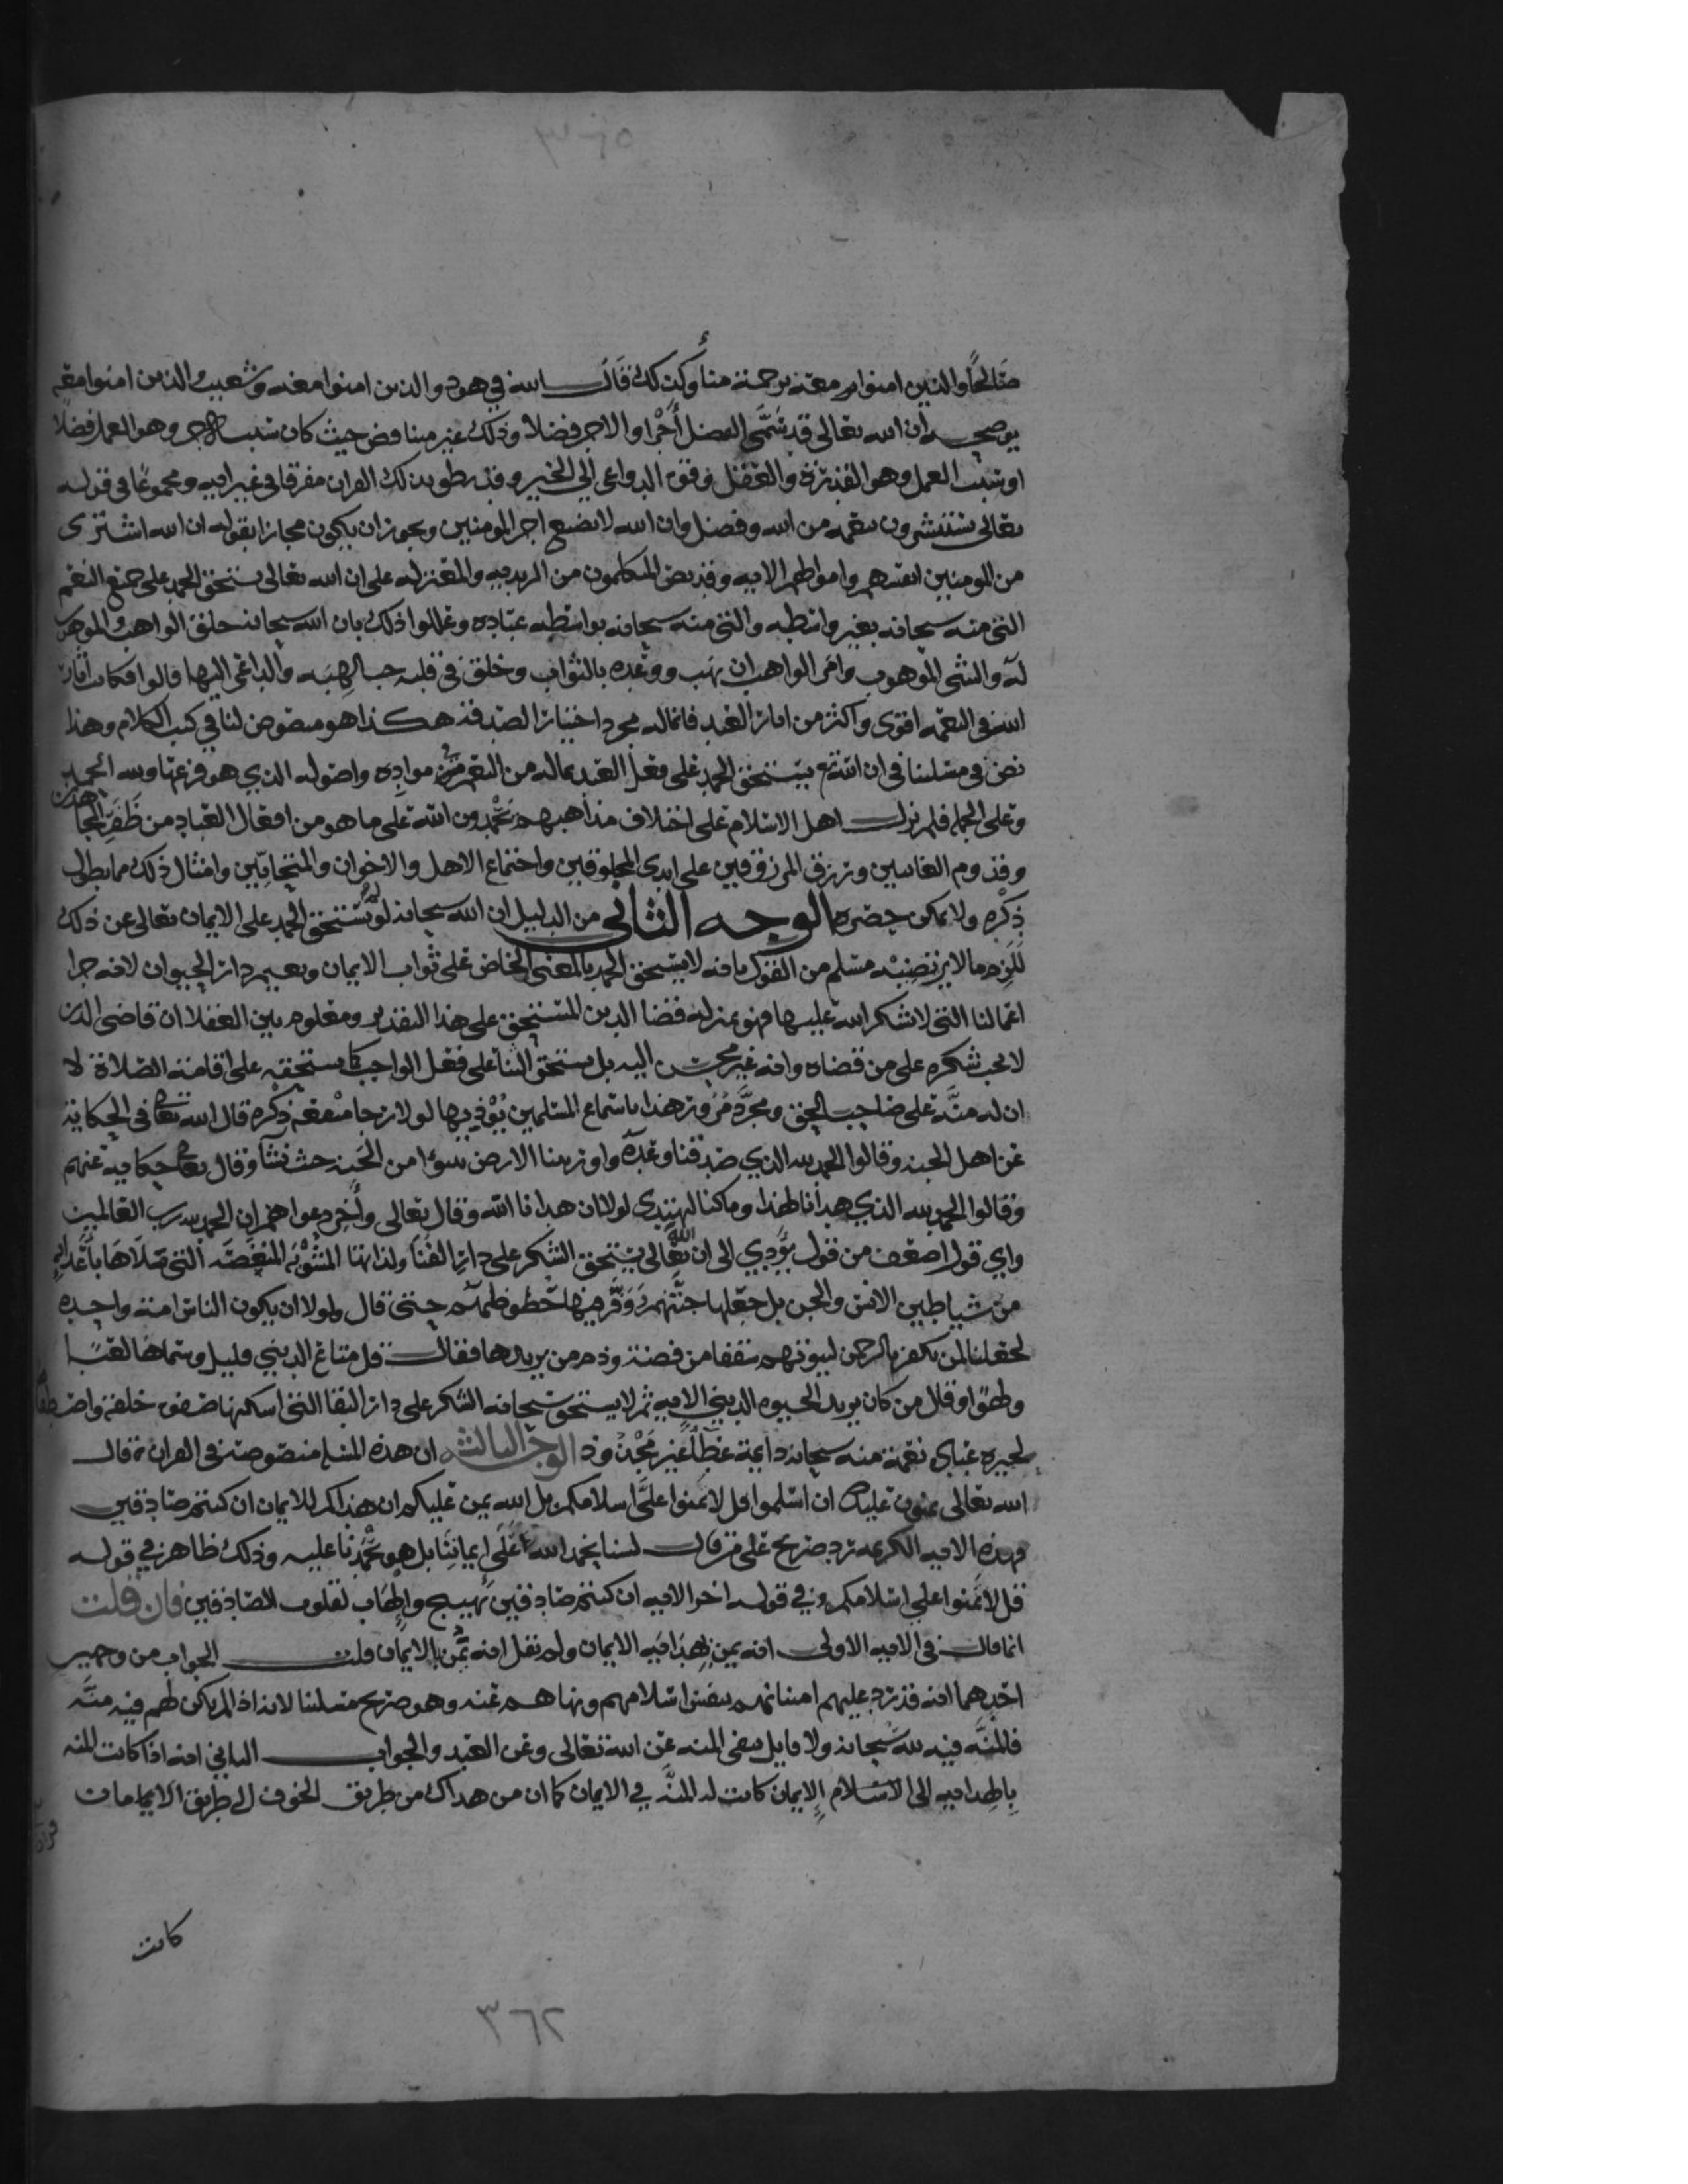 ٣٦٥
صالحًا والذين امنوا معه برحمة منا وكذلك قال الله في هود والذين امنوا معه وشعيب والذين امنوا معه
يوضحه ان الله تعالى قد سمى الفضل أجرا والاجر فضلا وذلك غير مناقض حيث كان سبب الاجر وهو العمل فضلا
او سبب العمل وهو القدرة والعقل وقوة الدواعي الى الخير وقد نطق بذلك القران مفرقا في غير ايه ومجموعا في قوله
تعالى يستبشرون بنعمه من الله وفضل وان الله لا يضيع اجر المومنين ويجوز ان يكون مجازا بقوله ان الله اشترى
من المومنين انفسهم واموالهم الايه وقد نص المتكلمون من الزيديه والمعتزله على ان الله تعالى يستحق الحمد على جميع النعم
التي منه سبحانه بغير واسطه والتي منه سبحانه بواسطه عباده وعللوا ذلك بان الله سبحانه خلق الواهب والموهوب
له والشي الموهوب وامر الواهب ان يهب ووعده بالثواب وخلق في قلبه حب الهبه والداعي اليها قالوا فكانت اثار
الله في النعمه اقوى واكثر من اثار العبد فانما له مجرد اختيار الصدقة هكذا هو منصوص لنا في كتب الكلام وهذا
نص في مسلتنا في ان الله تع يستحق الحمد على فعل العبد بما له من النعم في مواده واصوله الذي هو فرعها ولله الحمد
وعلى الجمله فلم يزل اهل الاسلام على اختلاف مذاهبهم يحمدون الله على ما هو من افعال العباد من ظفر المجاهدين
وقدوم الغايبين ورزق المرزوقين على ايدي المخلوقين واجتماع الاهل والاخوان والمتحابين وامثال ذلك مما يطول
ذكره ولا يمكن حصره الوجه الثاني من الدليل ان الله سبحانه لو لم يستحق الحمد على الايمان تعالى عن ذلك
للزم ما لا يرتضيه مسلم من القول بانه لا يستحق الحمد بالمعنى الخاص على ثواب الايمان ونعيم دار الحيوان لانه جزا
اعمالنا التي لا شكر الله عليها فهو بمنزله قضا الدين المستحق على هذا التقدير ومعلوم بين العقلا ان قاضي الدين
لا يجب شكره على من قضاه وانه غير محسن اليه بل يستحق الثنا على فعل الواجب كما يستحقه على اقامة الصلاة لا
ان له منة على صاحب الحق ومجرد مرور هذا باسماع المسلمين يوذيها لولا رجا منفعة ذكره قال الله تعا في الحكاية
عن اهل الجنه وقالوا الحمد لله الذي صدقنا وعده واورثنا الارض نتبوأ من الجنه حيث نشا وقال تعا حكايه عنهم
وقالوا الحمد لله الذي هدانا لهذا وما كنا لنهتدي لولا ان هدانا الله وقال تعالى وأخر دعواهم ان الحمد لله رب العالمين
واي قول اضعف من قول يؤدي الى ان الله تعالى يستحق الشكر على دار الفنا ولذاتها المشوبه المنغصه التي ملاها باعدايه
من شياطين الانس والجن بل جعلها جنتهم ووفر فيها حظوظهم حتى قال ولولا ان يكون الناس امة واحده
لجعلنا لمن يكفر بالرحمن لبيوتهم سقفا من فضة وذم من يريدها فقال قل متاع الدنيا قليل وسماها لعبا
ولهوا وقال من كان يريد الحيوه الدنيا الايه ثم لا يستحق سبحانه الشكر على دار البقا التي اسكنها صفوة خلقه واصطفاها
لخيره عباده نعمة منه سبحانه دايمة عطاً غير مجذوذ الوجه الثالث ان هذه المسله منصوصة في القران قال
الله تعالى يمنون عليك ان اسلموا قل لا تمنوا علي اسلامكم بل الله يمن عليكم ان هداكم للايمان ان كنتم صادقين
فهذه الايه الكريمه رد صريح على من قال لسنا نحمد الله على إيماننا بل هو يحمدنا عليه وذلك ظاهر في قوله
قل لا تمنوا علي اسلامكم وفي قوله اخر الايه ان كنتم صادقين تهييج وإلهاب لقلوب الصادقين فان قلت
انما قال في الايه الاولى انه يمن بهدايه الايمان ولم يقل انه يمن بالايمان قلت الجواب من وجهين
احدهما انه قد رد عليهم امتنانهم بنفس اسلامهم ونهاهم عنه وهو صريح مسلتنا لانه اذا لم يكن لهم فيه منة
فالمنه فيه لله سبحانه ولا قايل بنفي المنه عن الله تعالى وعن العبد والجواب الثاني انه اذا كانت المنه
بالهدايه الى الاسلام الايمان كانت له المنة في الايمان كما ان من هداك من طريق الخوف الى طريق الايمان
كانت
٣٦٢